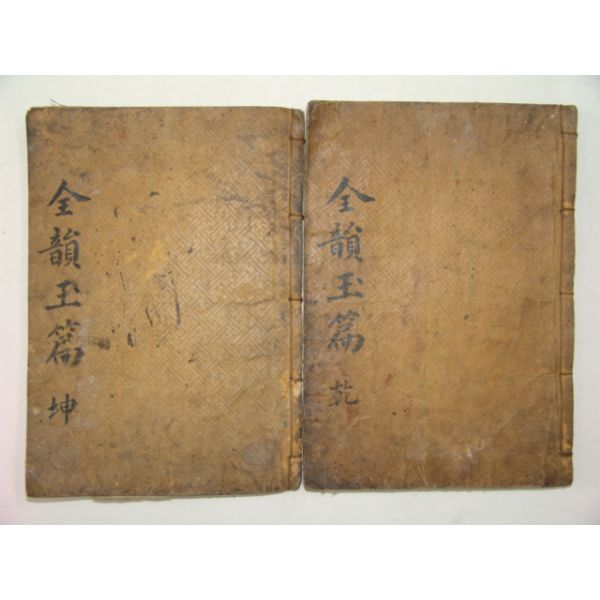 全韻玉篇 乾
全韻玉篇 坤